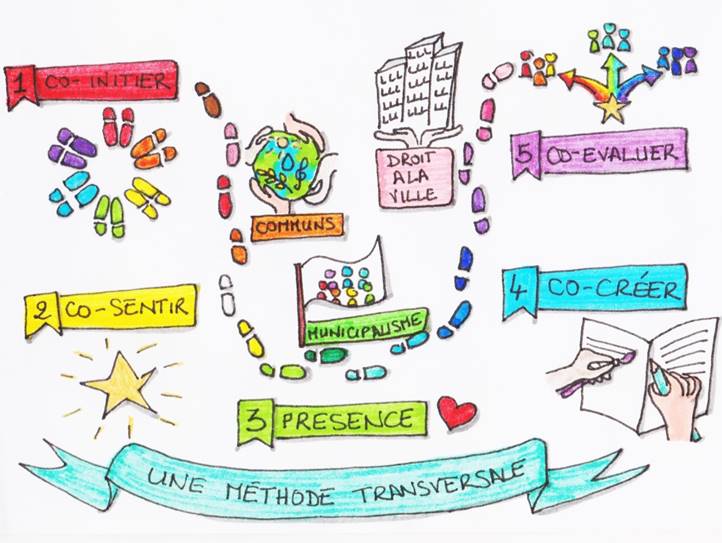 1 CO-INITIER
2 CO-SENTIR
3 PRESENCE
4 CO-CRÉER
5 CO-EVALUER
COMMUNS
MUNICIPALISME
DROIT
A LA
VILLE
UNE MÉTHODE TRANSVERSALE